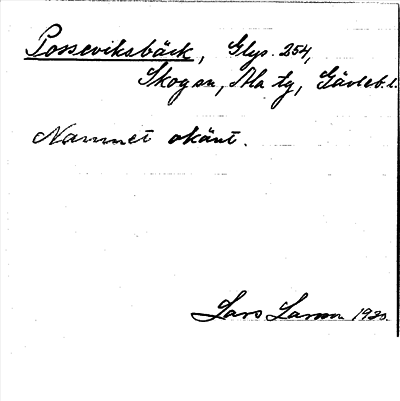 Posseviksbäck, Glys. 254,
Skog sn, Ala tg, Gävleb. l.
Namnet okänt.
Lars Larson 1930.